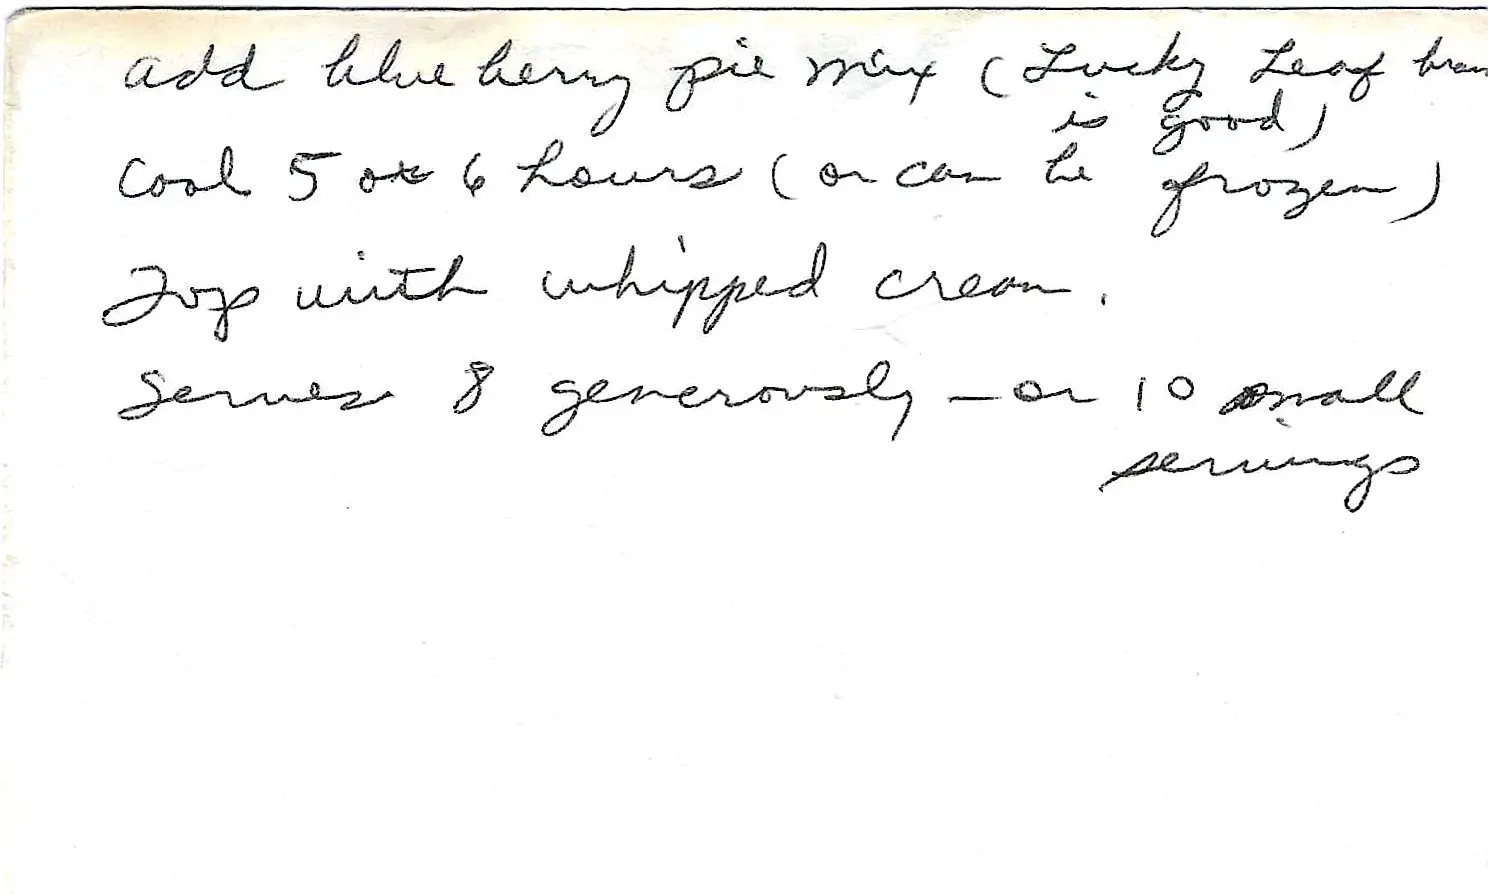 add blueberry pie mix (Lucky Leaf bran
is good)
Cool 5 or 6 hours (or can be frozen)
Top with whipped cream.
Serves 8 generously - or 10 small
servings